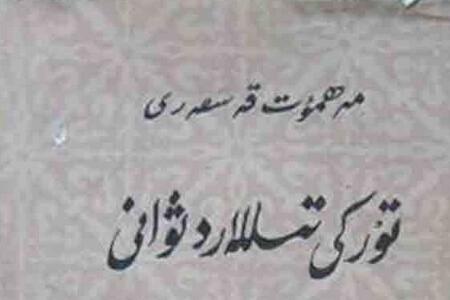 مەھمۇت قەشقەرى
تۈركى تىللار دىۋانى